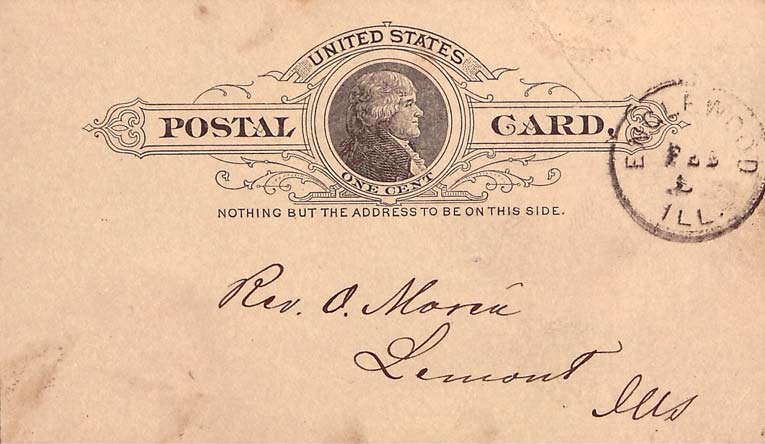 UNITED STATES
POSTAL CARD.
ONE CENT
NOTHING BUT THE ADDRESS TO BE ON THIS SIDE.
ENGLEWOOD
FEB
ILL.
Rev. O.
Lemont
Ills